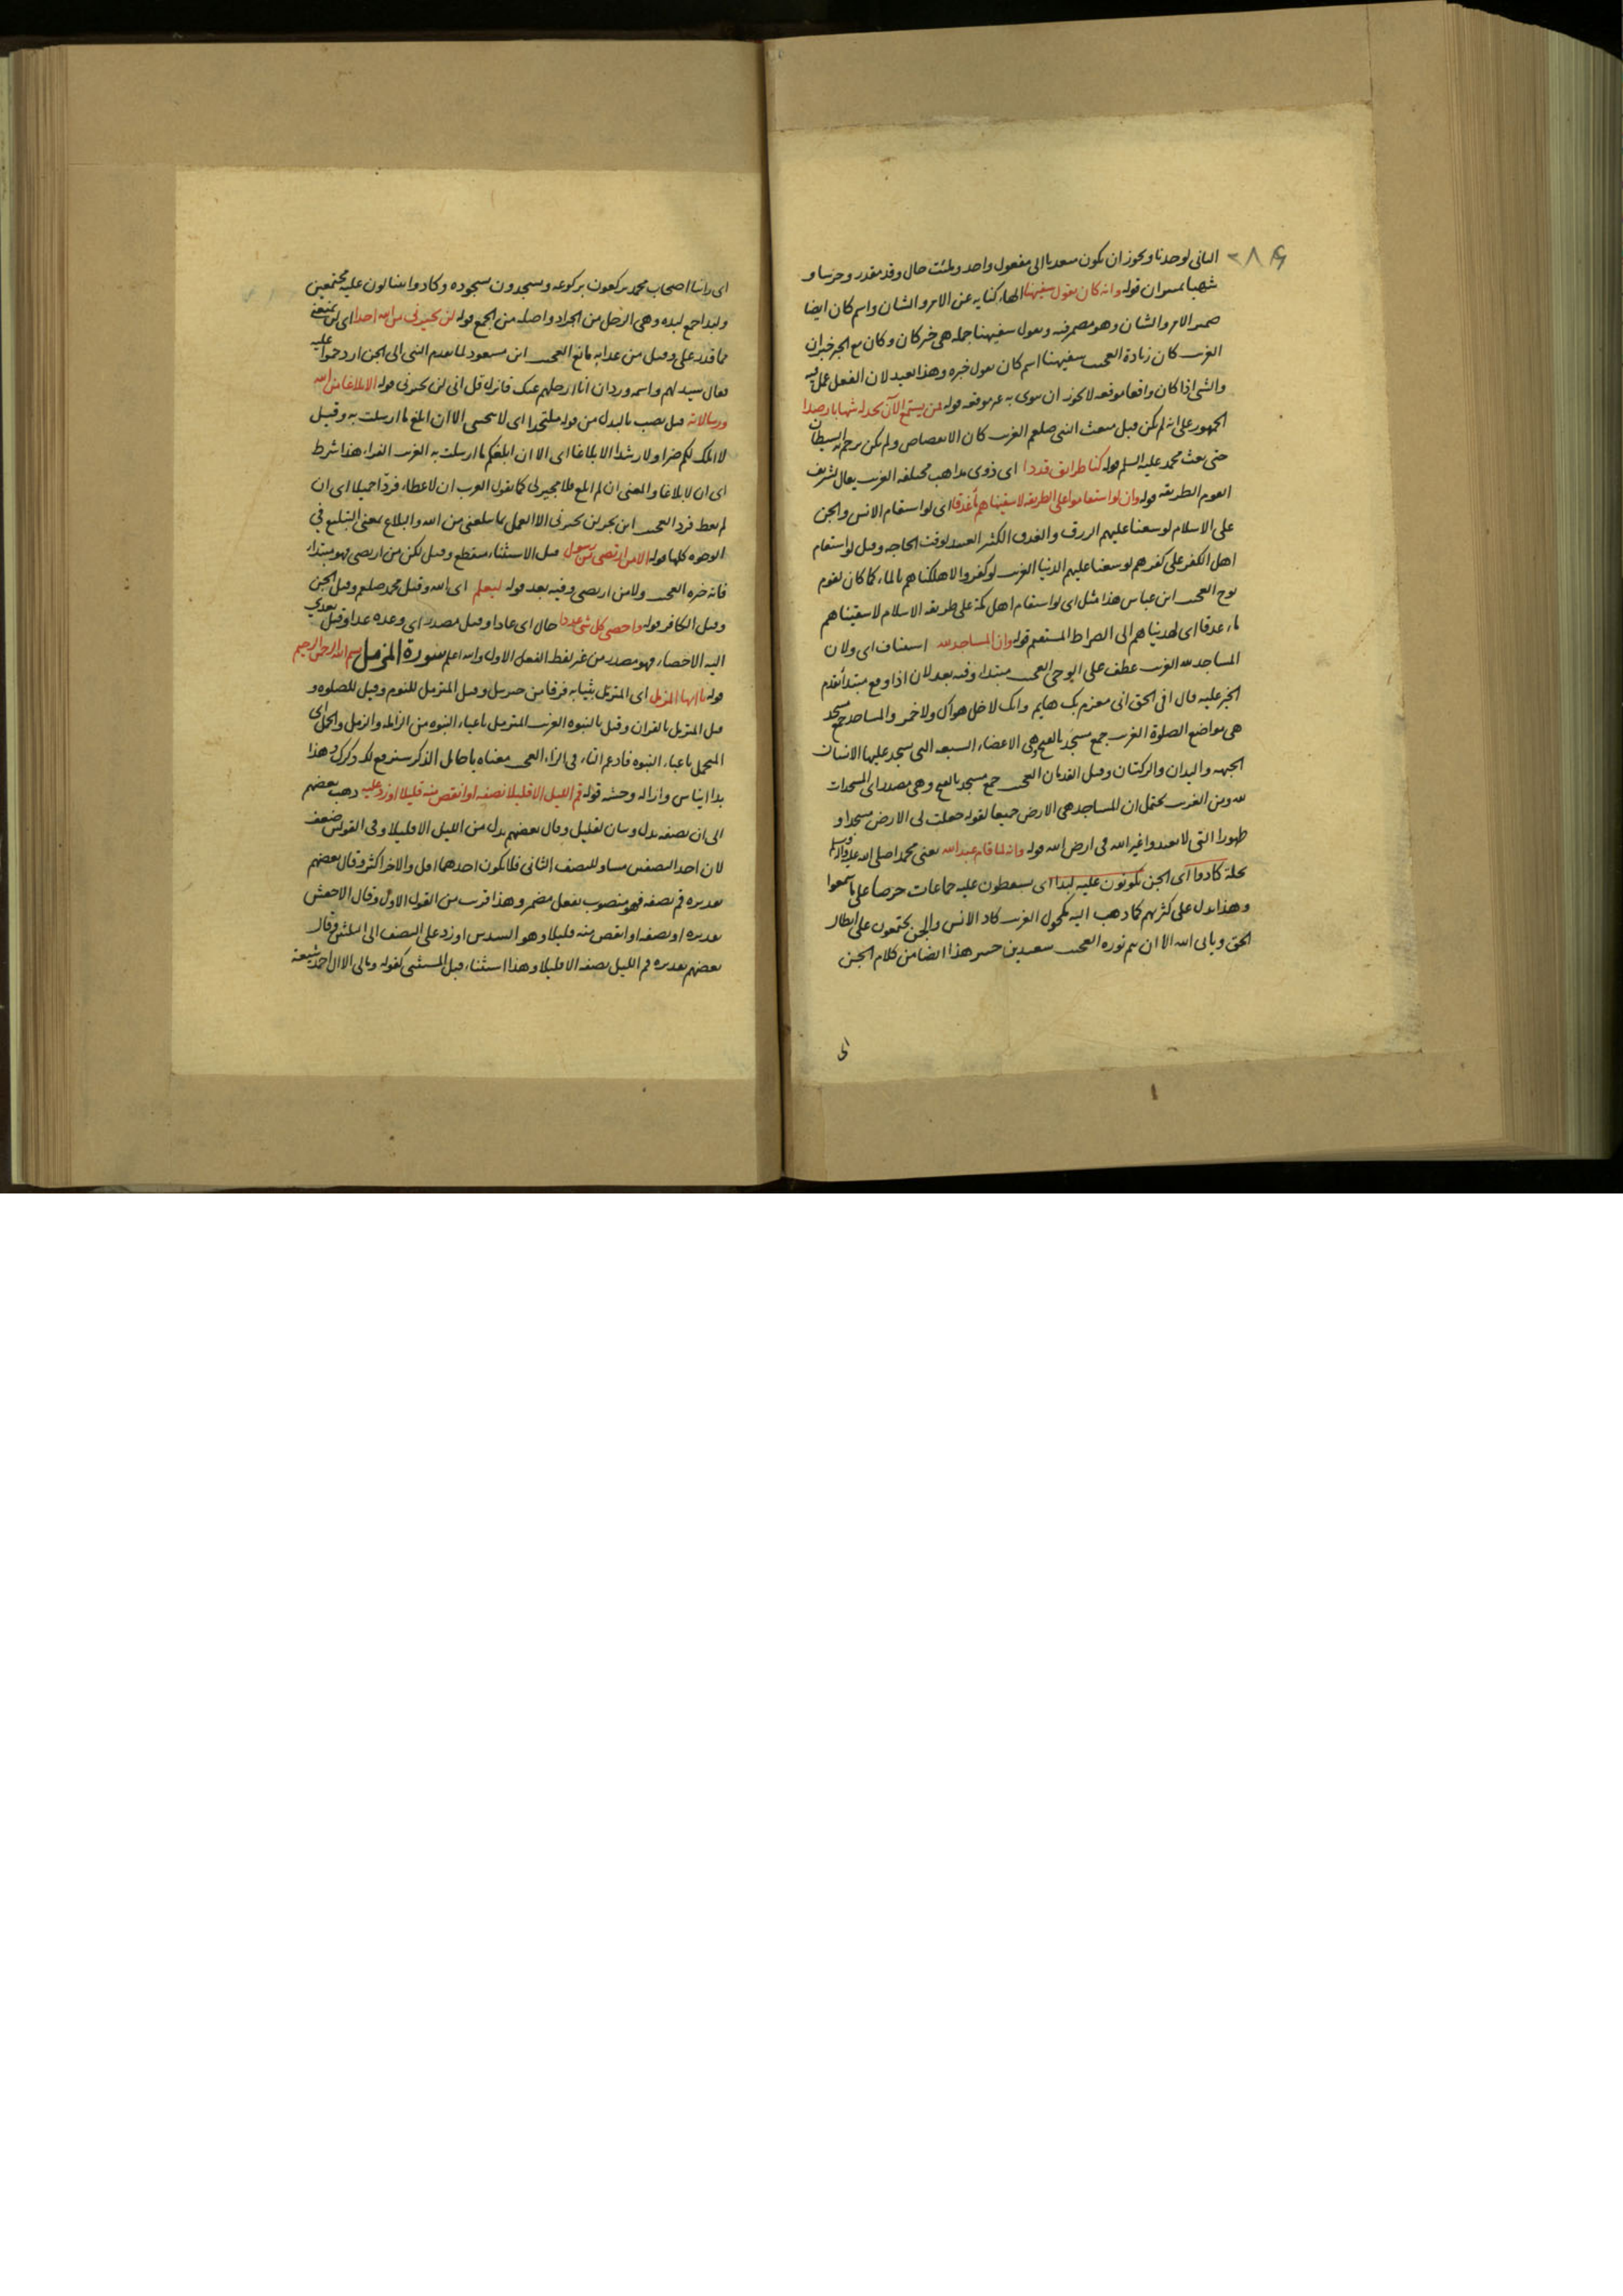 الثانى لوجدنا ويجوز ان يكون متعديا الى مفعول واحد وملئت حال وقد مقدر وحرسا و
شهبا تمييزان قوله وانه كان يقول سفيهنا الهاء كناية عن الامر والشان واسم كان ايضا
ضمير الامر والشان وهو مضمر فيه ويقول سفيهنا جملة هى خبر كان وكان مع الخبر خبر ان
الغريب كان زيادة العجيب سفيهنا اسم كان يقول خبره وهذا بعيد لان الفعل عمل فيه
والشئ اذا كان واقعا موقعه لا يجوز ان ينوى به غير موقعه قوله فمن يستمع الآن يجد له شهابا رصدا
الجمهور على انه لم يكن قبل مبعث النبى صلعم الغريب كان الانقضاض ولم يكن يرجم به الشيطان
حتى بعث محمد عليه السلم قوله كنا طرائق قددا اى ذوى مذاهب مختلفة الغريب يقال لشريف
القوم الطريقة قوله وان لو استقاموا على الطريقة لاسقيناهم ماء غدقا اى لو استقام الانس والجن
على الاسلام لوسعنا عليهم الرزق والغدق الكثير العتيد لوقت الحاجة وقيل لو استقام
اهل الكفر على كفرهم لوسعنا عليهم الدنيا الغريب لو كفروا لاهلكناهم بالماء كما كان لقوم
نوح العجيب ابن عباس هذا مثل اى لو استقام اهل مكة على طريقة الاسلام لاسقيناهم
ماء غدقا اى لهديناهم الى الصراط المستقيم قوله وان المساجد لله استيناف اى ولان
المساجد لله الغريب عطف على اوحى العجيب مبتداء وفيه بعد لان اذا وقع مبتدأ تقدم
الخبر عليه قال افى الحق انى مغرم بك هايم وانك لا خل هواك ولا خمر والمساجد جمع مسجد
هى مواضع الصلوة الغريب جمع مسجد بالفتح وهى الاعضاء السبعة التى يسجد عليها الانسان
الجبهة واليدان والركبتان وقيل القدمان العجيب جمع مسجد بالفتح وهى مصدر اى السجدات
لله ومن الغريب يحتمل ان المساجد هى الارض جميعا لقوله جعلت لى الارض مسجدا و
طهورا التى لا تعبدوا غير الله فى ارض الله قوله وانه لما قام عبد الله يعنى محمدا صلى الله عليه واله وسلم
نخلة كادوا اى الجن يكونون عليه لبدا اى يسقطون عليه جماعات حرصا على ما سمعوا
وهذا يدل على كثرتهم كما ذهب اليه مكحول الغريب كاد الانس والجن يجتمعون على ابطال
الحق ويابى الله الا ان يتم نوره العجيب سعيد بن جبير هذا ايضا من كلام الجن
اى
اى راينا اصحاب محمد يركعون بركوعه ويسجدون بسجوده وكادوا ينثالون عليه مجتمعين
ولبدا جمع لبدة وهى الرجل من الجراد واصله من الجمع قوله لن يجيرنى من الله احد اى لن يمنعنى
مما قدره على وقيل من عذابه مانع العجيب ابن مسعود لما تقدم النبى الى الجن ازدحموا عليه
فقال سيد لهم واسمه وردان انا ارحلهم عنك فانزل قل انى لن يجيرنى قوله الا بلاغا من الله
ورسالاته قيل نصب بالبدل من قوله ملتحدا اى لا ينجينى الا ان ابلغ ما ارسلت به وقيل
لا املك لكم ضرا ولا رشدا الا بلاغا اى الا ان ابلغكم ما ارسلت به الغريب الفراء هذا شرط
اى ان لا بلاغا والمعنى ان لم ابلغ فلا مجير لى كما تقول العرب ان لا عطاء فردا جميلا اى ان
لم تعط فرد العجيب ابن بحر لن يجيرنى الا العمل بما بلغنى من الله والبلاغ بمعنى التبليغ فى
الوجوه كلها قوله الا من ارتضى من رسول قيل الاستثناء منقطع وقيل لكن من ارتضى فهو مبتداء
فانه خبره العجيب ولا من ارتضى وفيه بعد قوله ليعلم اى الله وقيل محمد صلعم وقيل الجن
وقيل الكافر قوله واحصى كل شئ عددا حال اى عادا وقيل مصدر اى وعده عدا وقيل تعدى
اليه الاحصاء فهو مصدر من غير لفظ الفعل الاول والله اعلم سورة المزمل بسم الله الرحمن الرحيم
قوله يا ايها المزمل اى المتزمل بثيابه فرقا من جبريل وقيل المتزمل للنوم وقيل للصلوة و
قيل المتزمل بالقران وقيل بالنبوة الغريب المتزمل باعباء النبوة من الزاملة والزمل والحمل اى
المتحمل باعباء النبوة فادغم التاء فى الزاء العجيب معناه يا خامل الذكر سنرفع لك ذكرك وهذا
بدا ايناس وازالة وحشة قوله قم الليل الا قليلا نصفه او انقص منه قليلا او زد عليه ذهب بعضهم
الى ان نصفه بدل وبيان لقليل وقال بعضهم بدل من الليل الا قليلا وفى القولين ضعف
لان احد النصفين مساو للنصف الثانى فلا يكون احدهما اقل والاخر اكثر وقال بعضهم
تقديره قم نصفه فهو منصوب بفعل مضمر وهذا قريب من القول الاول وقال الاخفش
تقديره او نصفه او انقص منه قليلا وهو السدس او زد على النصف الى الثلثين وقال
بعضهم تقديره قم الليل نصفه الا قليلا وهذا استثناء قبل المستثنى كقوله ومالى الا ال احمد شيعة